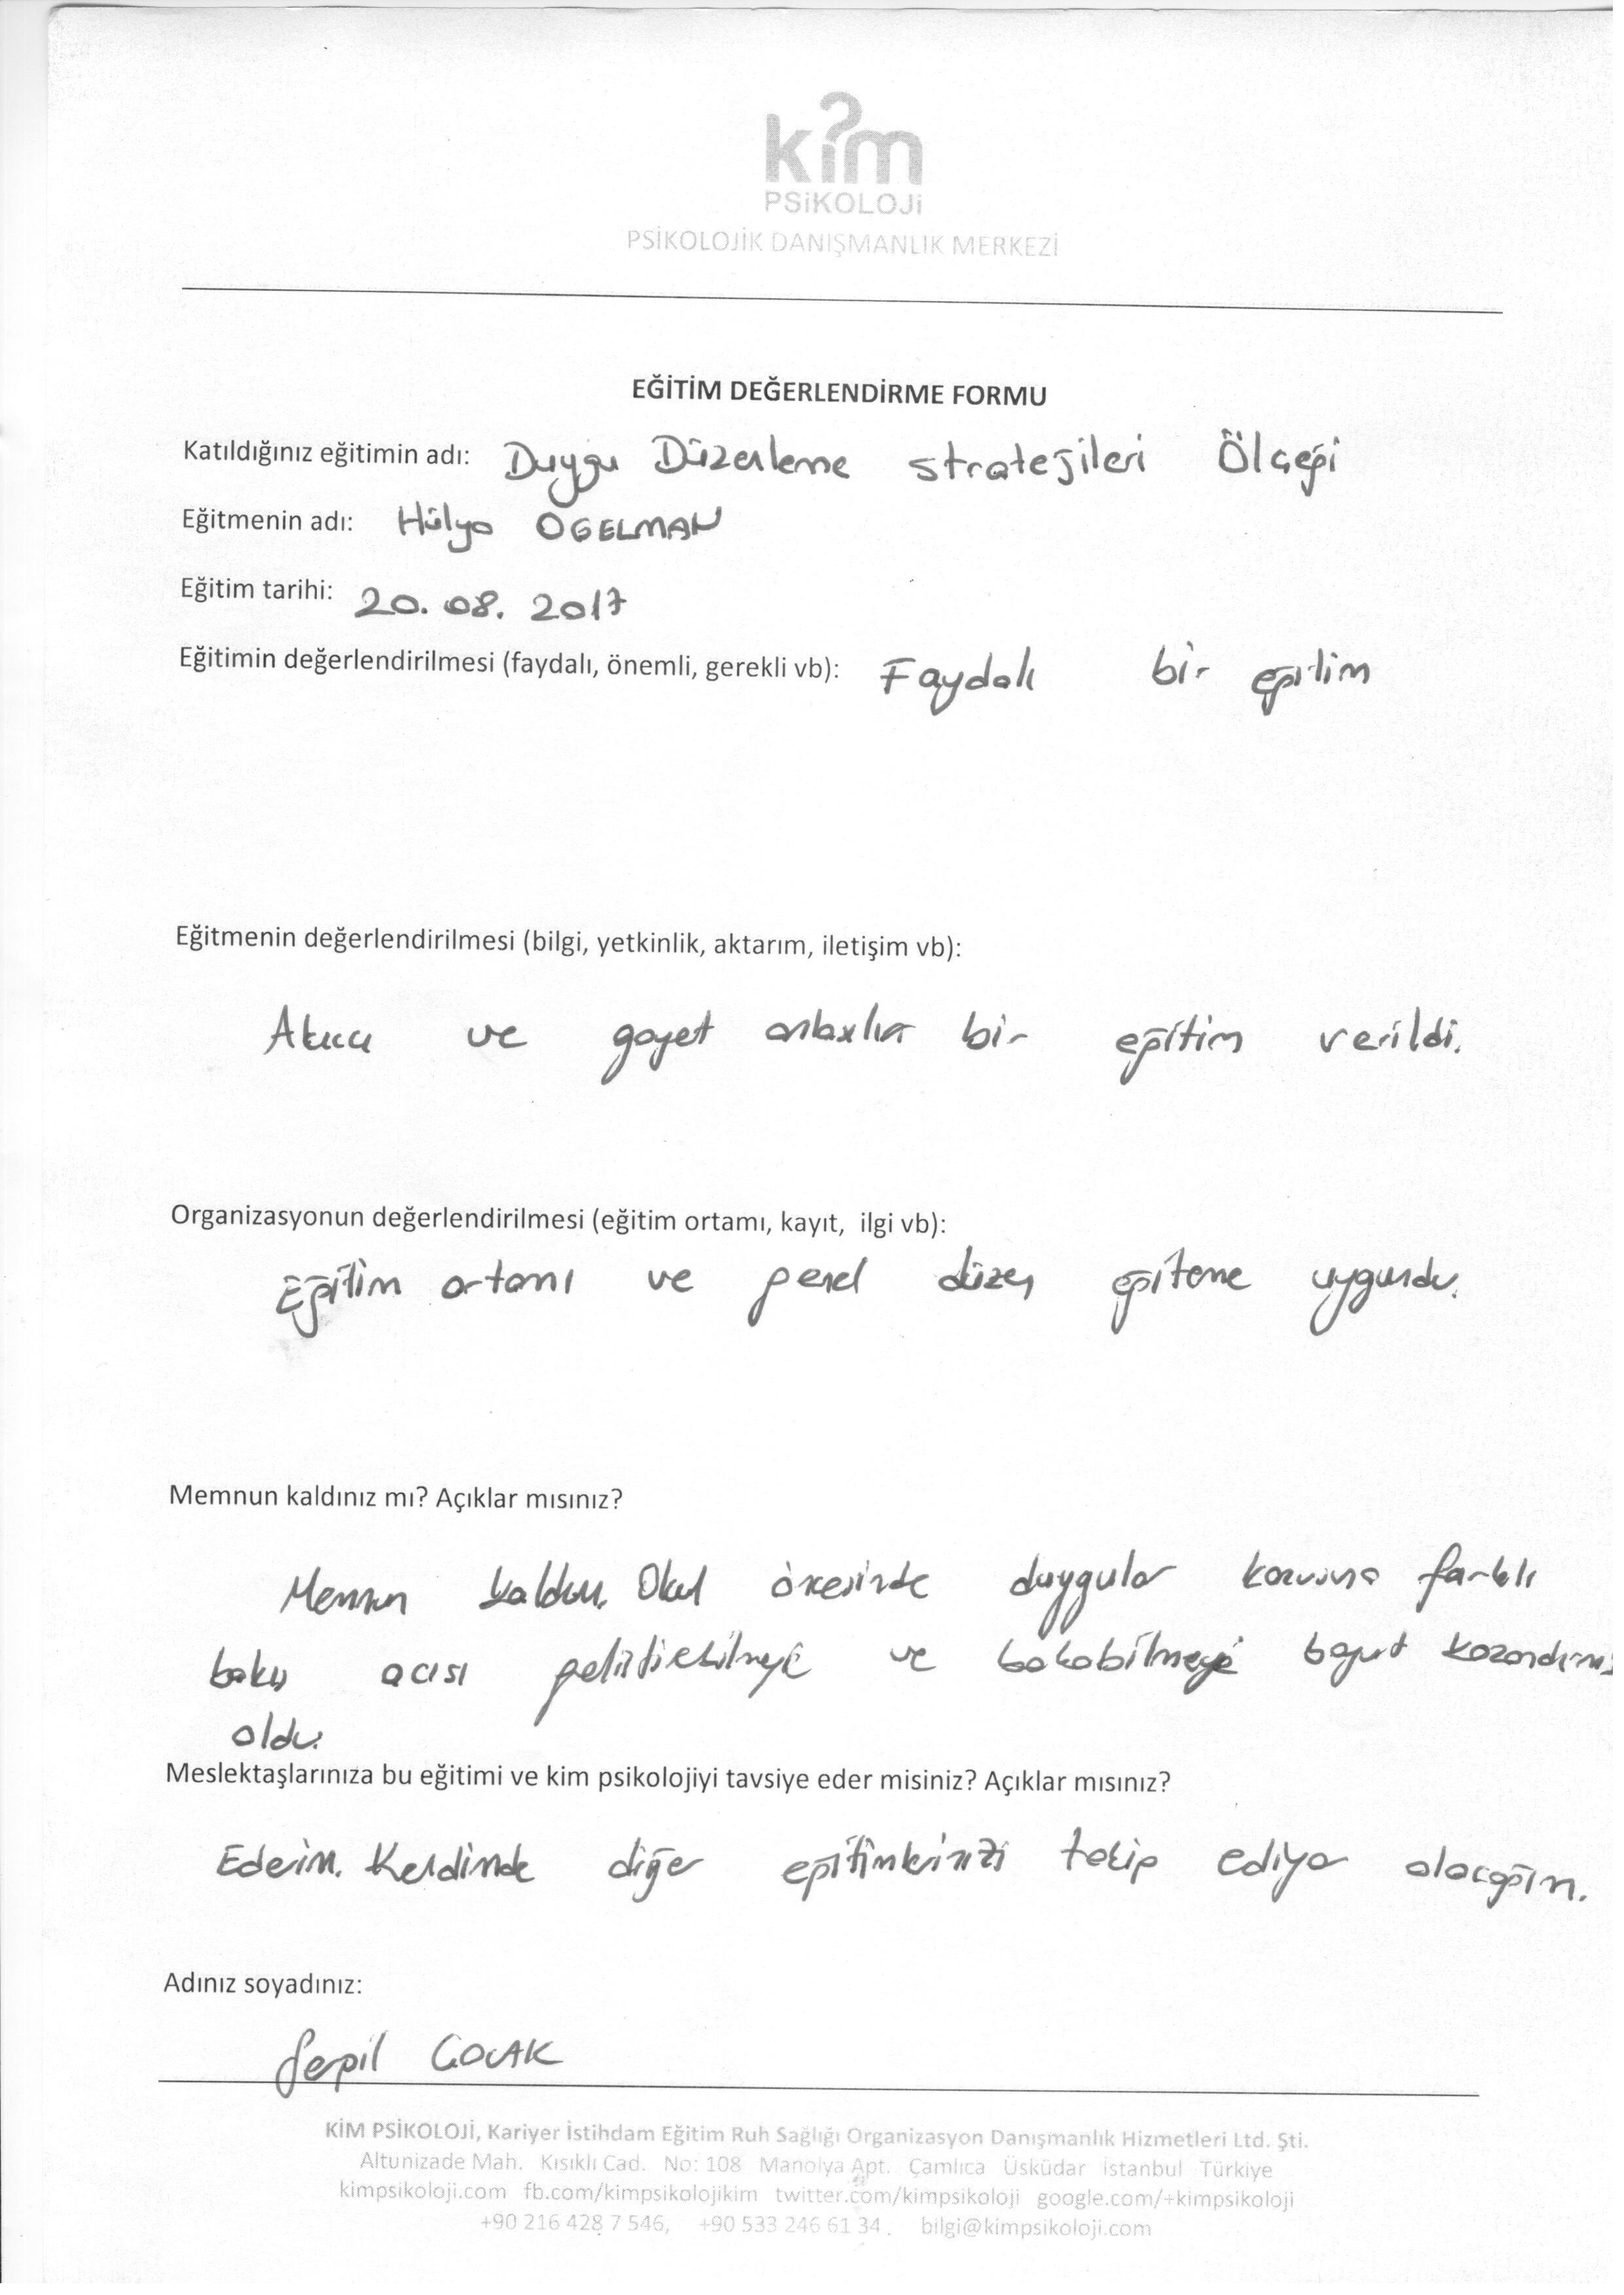 kim
PSiKOLOJi
PSİKOLOJİK DANIŞMANLIK MERKEZİ
EĞİTİM DEĞERLENDİRME FORMU
Katıldığınız eğitimin adı: Duygu Düzenleme stratejileri Ölçeği
Eğitmenin adı: Hülya OGELMAN
Eğitim tarihi: 20.08.2017
Eğitimin değerlendirilmesi (faydalı, önemli, gerekli vb): Faydalı bir eğitim
Eğitmenin değerlendirilmesi (bilgi, yetkinlik, aktarım, iletişim vb):
Akıcı ve gayet anlaşılır bir eğitim verildi.
Organizasyonun değerlendirilmesi (eğitim ortamı, kayıt, ilgi vb):
Eğitim ortamı ve genel düzen eğiteme uygundu.
Memnun kaldınız mı? Açıklar mısınız?
Memnun kaldım. Okul öncesinde duygular konusuna farklı
bakış açısı geliştirebilmeyi ve bakabilmeye boyut
oldu.
Meslektaşlarınıza bu eğitimi ve kim psikolojiyi tavsiye eder misiniz? Açıklar mısınız?
Ederim. Kendimde diğer eğitimlerinizi takip ediyor olacağım.
Adınız soyadınız:
Serpil ÇOLAK
KİM PSİKOLOJİ, Kariyer İstihdam Eğitim Ruh Sağlığı Organizasyon Danışmanlık Hizmetleri Ltd. Şti.
Altunizade Mah. Kısıklı Cad. No: 108 Manolya Apt. Çamlıca Üsküdar İstanbul Türkiye
kimpsikoloji.com fb.com/kimpsikolojikim twitter.com/kimpsikoloji google.com/+kimpsikoloji
+90 216 428 7 546, +90 533 246 61 34. bilgi@kimpsikoloji.com